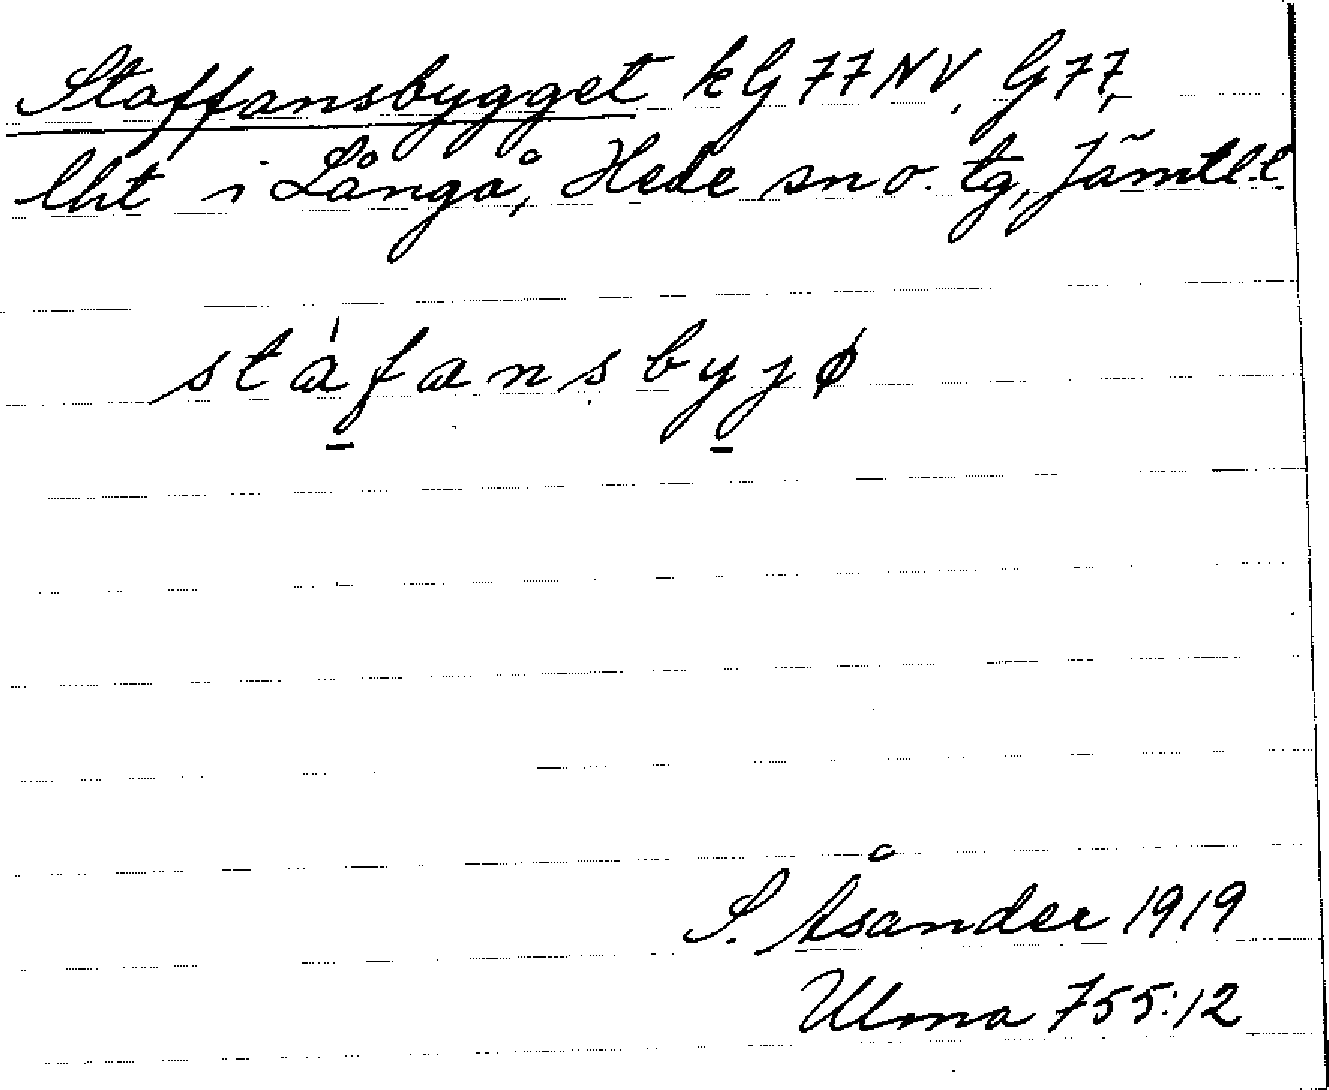 Staffansbygget kG77NV, G77,
lht i Långå, Hede sn o. tg, Jämtl.l.
stáfansbyjø
S. Åsander 1919
Ulma 755:12